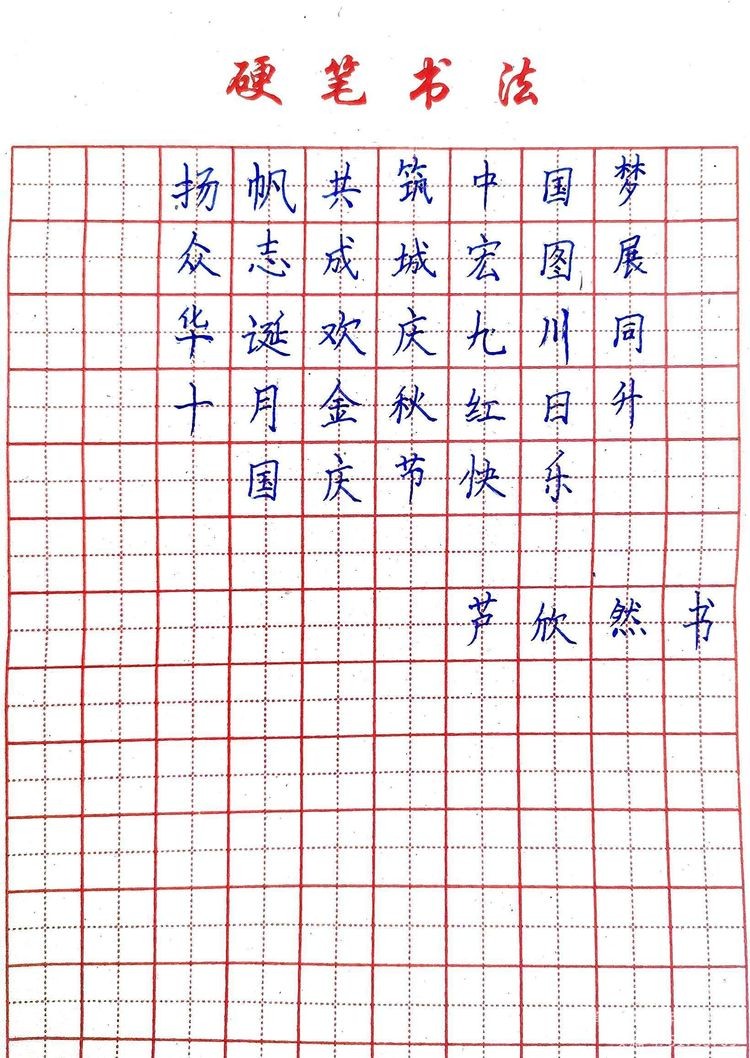 硬笔书法
扬帆共筑中国梦
众志成城宏图展
华诞欢庆九川同
十月金秋红日升
国庆节快乐
芦欣然书